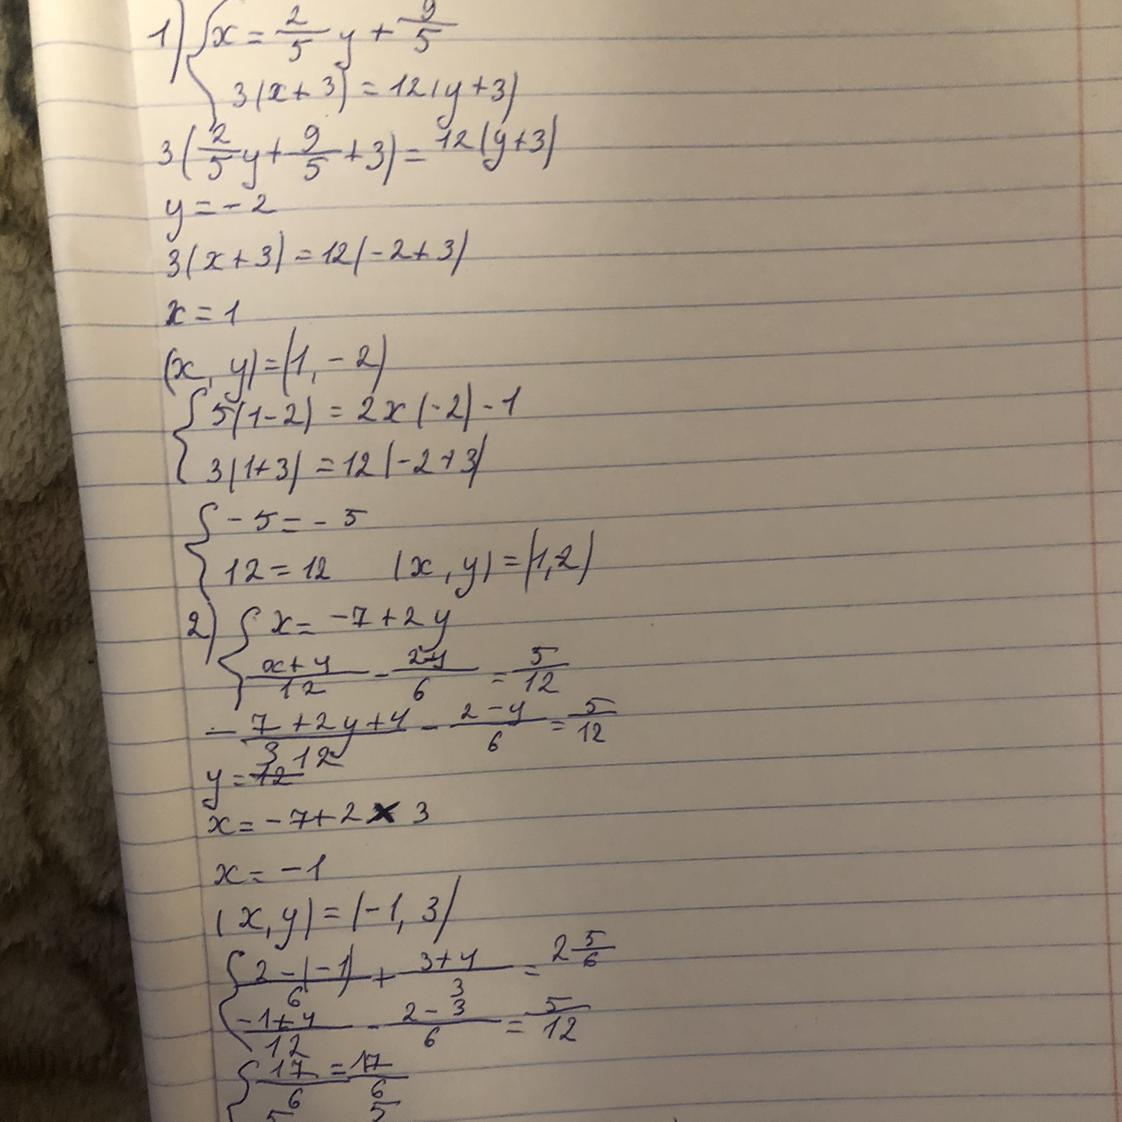 1) { x = 2/5 y + 9/5
3(x+3) = 12(y+3)
3(2/5 y + 9/5 + 3) = 12(y+3)
y = -2
3(x+3) = 12(-2+3)
x = 1
(x, y) = (1, -2)
{ 5(1-2) = 2x(-2)-1
3(1+3) = 12(-2+3)
{ -5 = -5
12 = 12 (x, y) = (1,2)
2) { x = -7+2y
x+y/12 - 2-y/6 = 5/12
-7+2y+y/12 - 2-y/6 = 5/12
y = 3
x = -7+2 x 3
x = -1
(x, y) = (-1, 3)
{ 2-(-1)/6 + 3+4/3 = 2 5/6
-1+4/12 - 2-3/6 = 5/12
{ 17/6 = 17/6
5 5